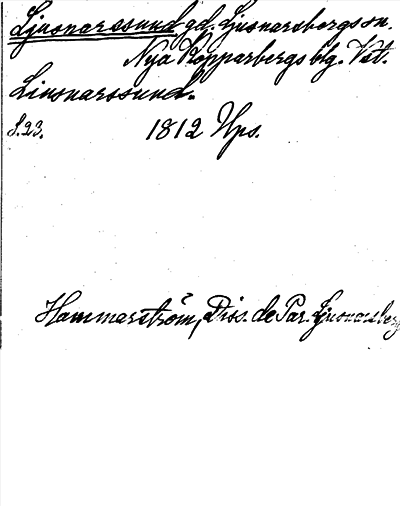 Ljusnarssund gd. Ljusnarsbergs sn.
Nya Kopparbergs blg. Vst.
Liusnarssund.
S. 23. 1812 Ups.
Hammarström, Diss. de Par. Ljusnarsberg